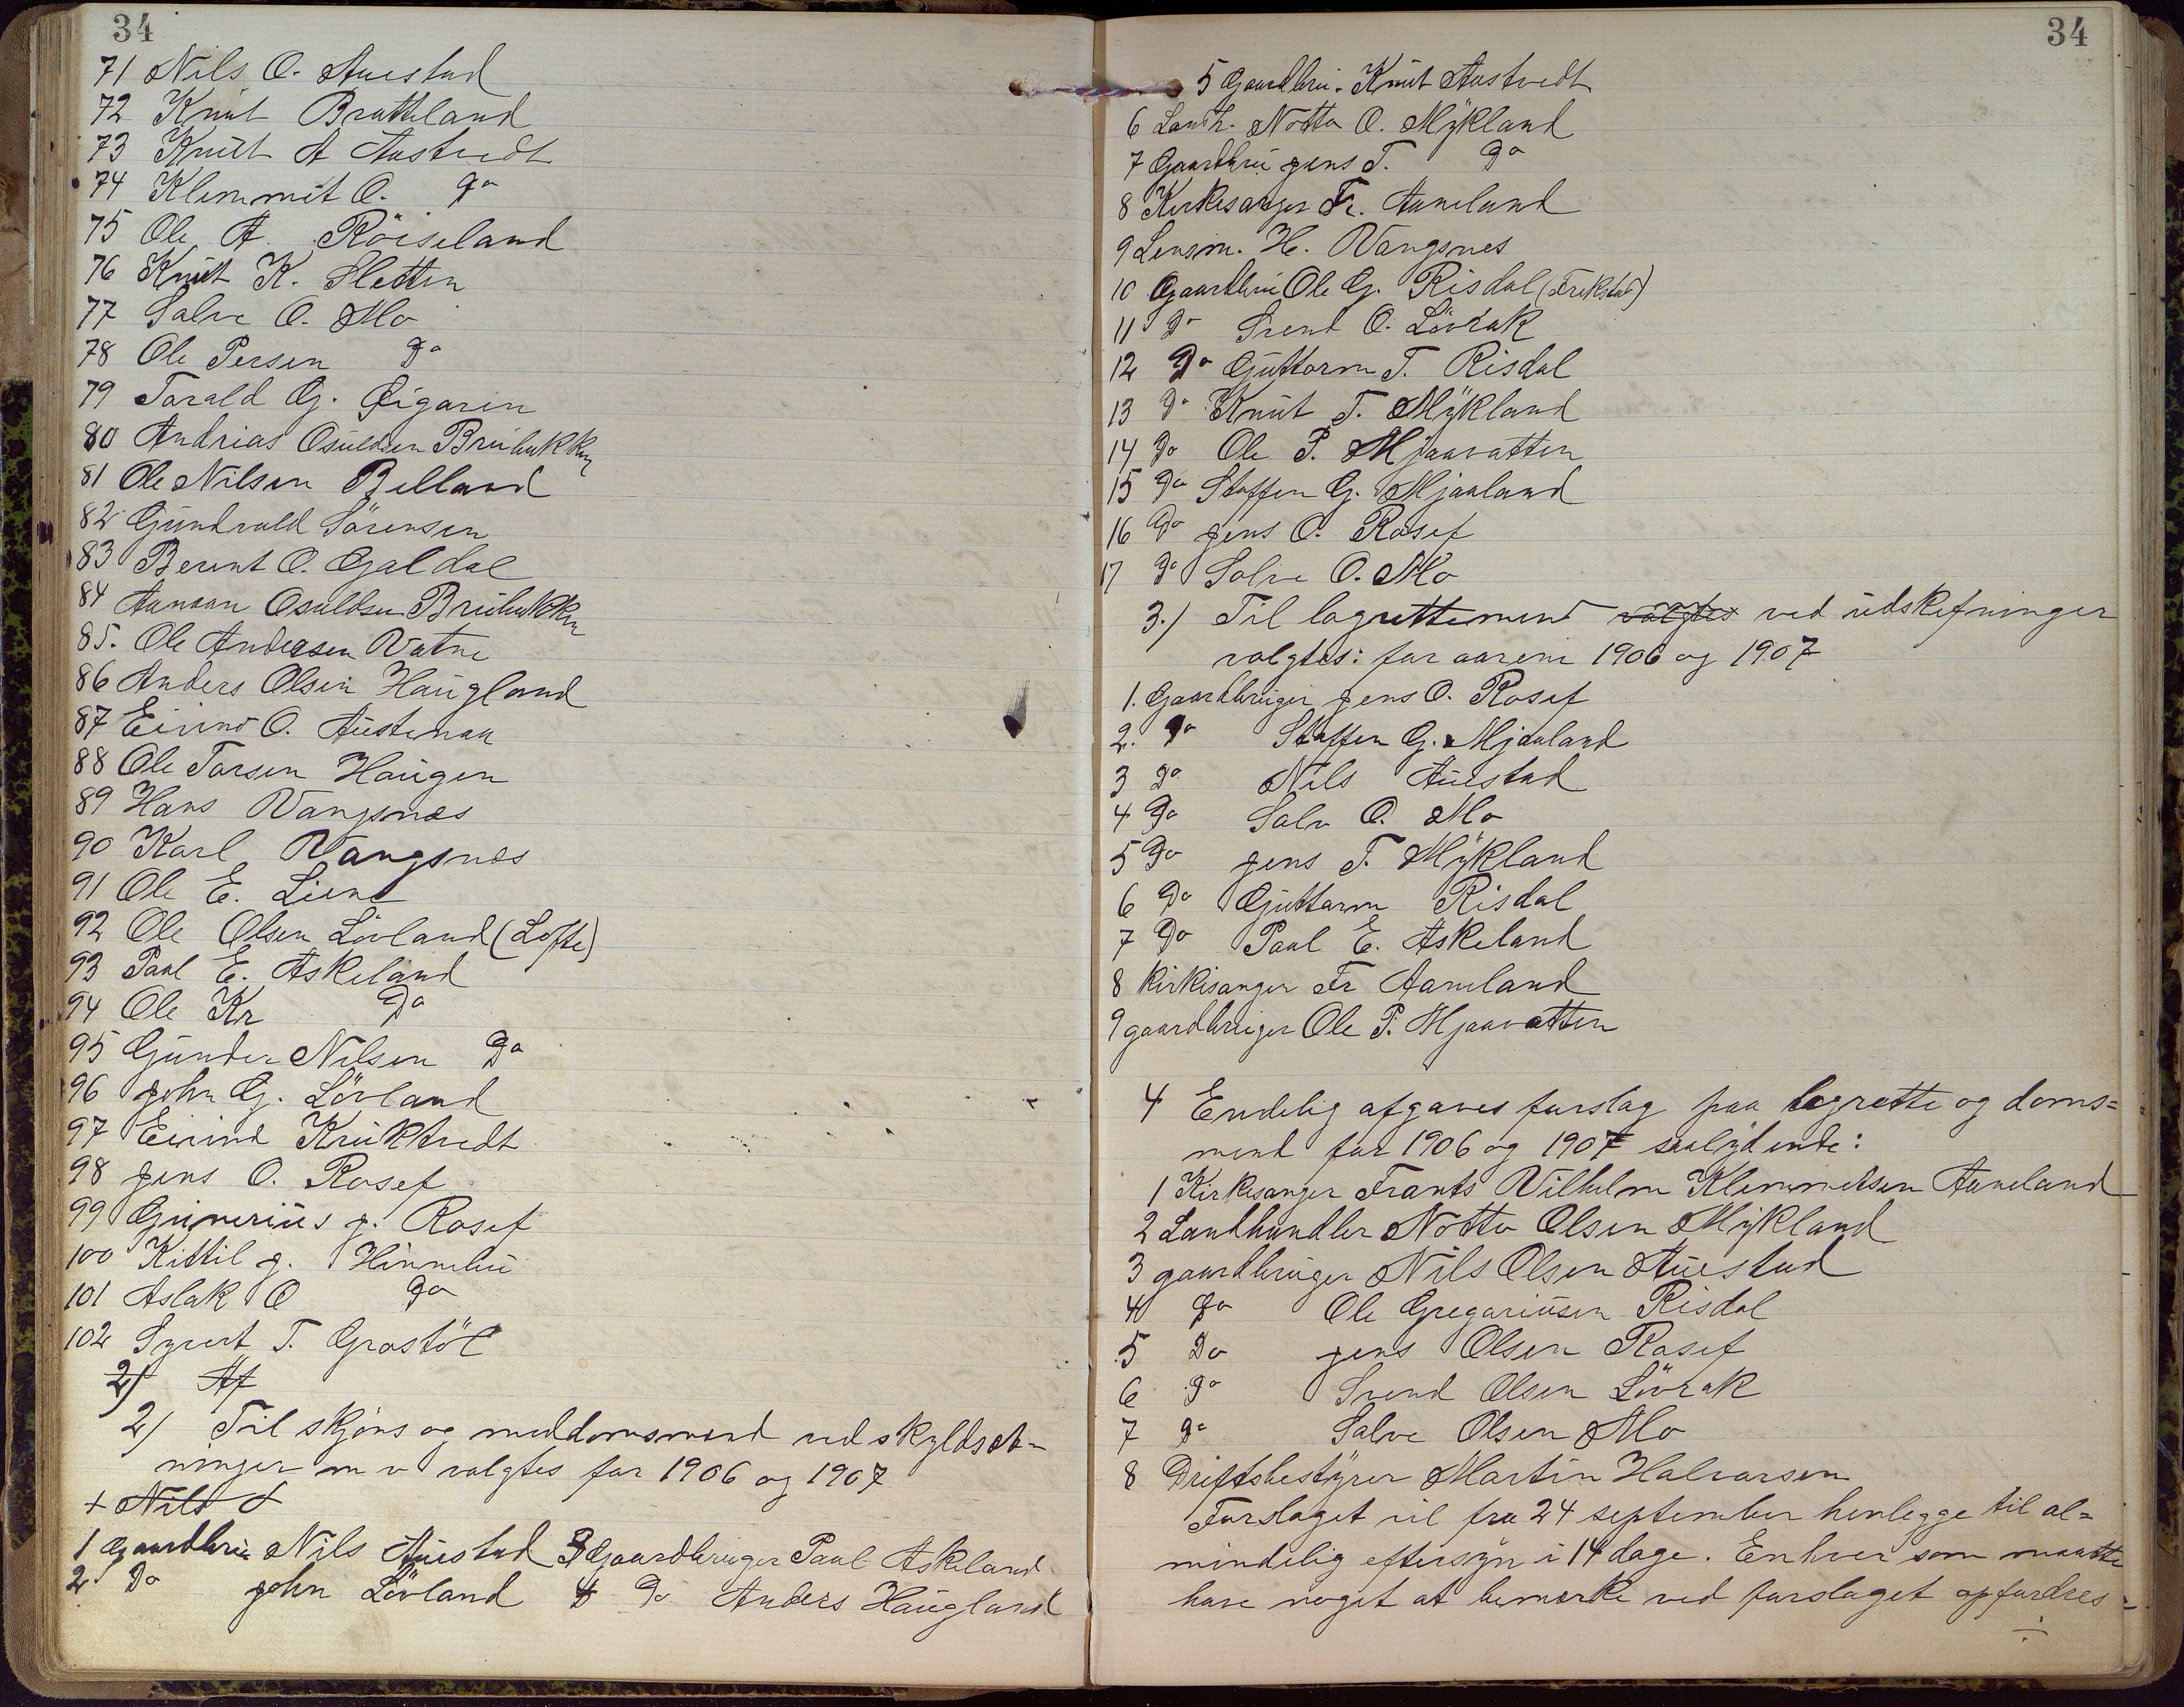 34
71 Nils O. Auestad
72 Knut Bratteland
73 Knut A Austvedt
74 Klemmit O. Do
75 Ole A. Röiseland
76 Knut K. Sletten
77 Salve O. Mo
78 Ole Persen Do
79 Torald G. Øigaren
80 Andrias Osuldsen Bruhukken
81 Ole Nilsen Belland
82 Gundvald Sörensen
83 Berent O. Galdal
84 Aanaan Osuldsen Bruhukken
85. Ole Andersen Vatne
86 Anders Olsen Haugland
87 Eivind O. Austenaa
88 Ole Torsen Haugen
89 Hans Vangsnæs
90 Karl Vangsnæs
91 Ole E. Lien
92 Ole Olsen Lövland (Lofte)
93 Paal E. Askeland
94 Ole Kr Do
95 Gunder Nilsen Do
96 John G. Lövland
97 Eivind Kruktvedt
98 Jens O. Rosef
99 Gunerius J. Rosef
100 Kittil J. Hinnebu
101 Aslak O Do
102 Syvert T. Grostöl
2) Af
2) Til skjöns og meddomsmænd ved skyldsæt-
ninger m v valgtes for 1906 og 1907
+ Nils
1 Gaardbru Nils Auestad 3 Gaardbruger Paal Askeland
2 Do John Lövland 4 Do Anders Haugland
34
5 Gaardbru. Knut Austvedt
6 Landh. Notto O. Mykland
7 Gaardbru Jens T. Do
8 Kirkesanger Fr. Aaneland
9 Lensm. H. Vangsnes
10 Gaardbru Ole G. Risdal (Trekstad)
11 Do Svend O. Lövrak
12 Do Guttorm T. Risdal
13 Do Knut T. Mykland
14 Do Ole P. Mjaavatten
15 Do Staffen G. Mjaaland
16 Do Jens O. Rosef
17 Do Salve O. Mo
3.) Til lagrettemend valgtes ved udskifninger
valgtes: for aarene 1906 og 1907
1. Gaardbruger Jens O. Rosef
2. Do Staffen G. Mjaaland
3 Do Nils Auestad
4 Do Salv O. Mo
5 Do Jens T. Mykland
6 Do Guttorm Risdal
7 Do Paal E. Askeland
8 Kirkesanger Fr Aaneland
9 gaardbruger Ole P. Mjaavatten
4 Endelig afgaves forslag paa lagrette og doms=
mend for 1906 og 1907 saalydende:
1 Kirkesanger Frants Vilhelm Klemmetsen Aaneland
2 Landhandler Notto Olsen Mykland
3 gaardbruger Nils Olsen Auestad
4 Do Ole Gregoriusen Risdal
5 Do Jens Olsen Rosef
6 Do Svend Olsen Lövrak
7 Do Salve Olsen Mo
8 Driftsbestyrer Martin Halvorsen
Forslaget vil fra 24 september henlegge til al=
mindelig eftersyn i 14 dage. Enhver som maatte
have noget at bemærke ved forslaget opfordres=